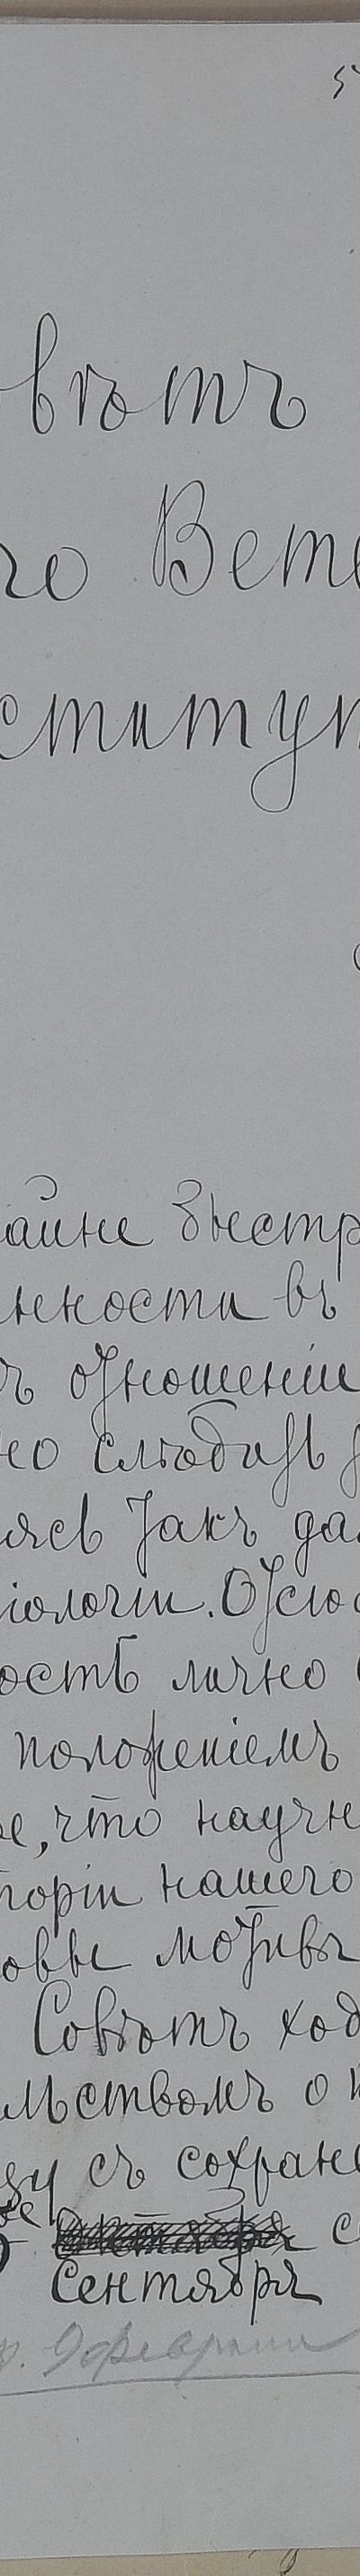 овѣтъ
го Вете
ститут
айне быстр
нности въ
ъ отношеніи
но слѣдить
яясь такъ да
іологіи. Отсю
ость лично
положеніемъ
е, что научн
торіи нашего
овы мотивы
Совѣтъ ход
льствомъ о
цу съ сохране
Сентября